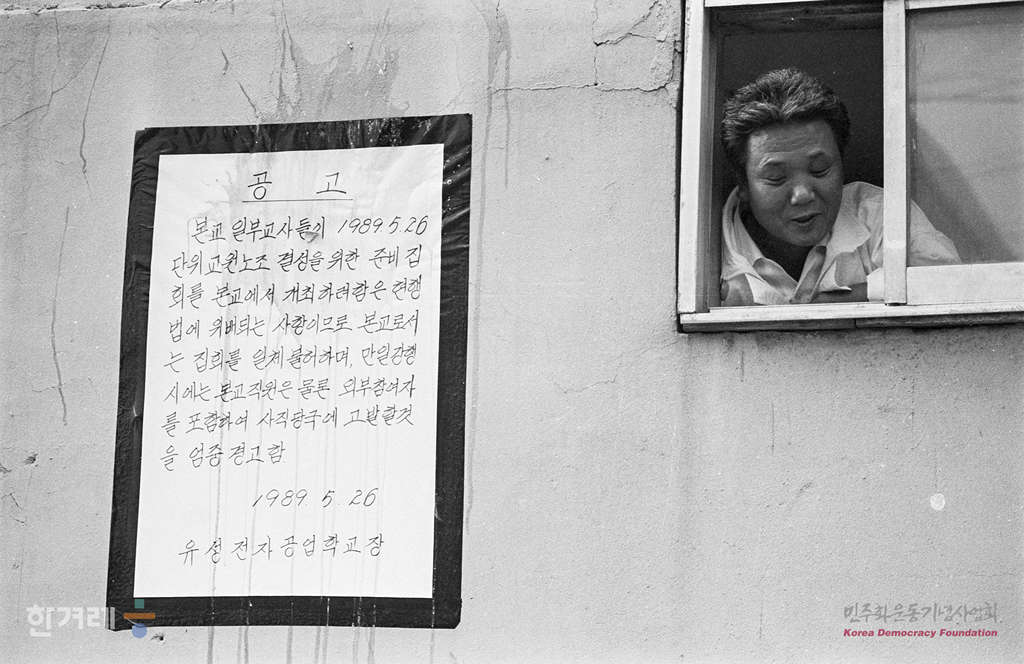 공 고
본교 일부교사들이 1989.5.26
단위교원노조 결성을 위한 준비집
회를 본교에서 개최하려함은 현행
법에 위배되는 사항이므로 본교로서
는 집회를 일체 불허하며, 만일강행
시에는 본교직원은 물론 외부참여자
를 포함하여 사직당국에 고발할것
을 엄중경고함
1989. 5. 26
유성전자공업학교장
한겨레
민주화운동기념사업회
Korea Democracy Foundation